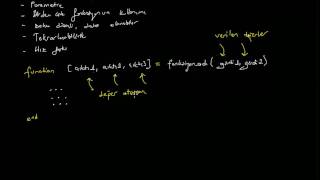 - Parametre
- Birden çok fonksiyon kullanımı
- Daha düzenli, daha
- Tekrarlanabilirlik
- Hız
verilen değerler
function [çıktı1, çıktı2, çıktı3] = fonksiyonadı (girdi1, girdi2)
değer atanan
...
...
end